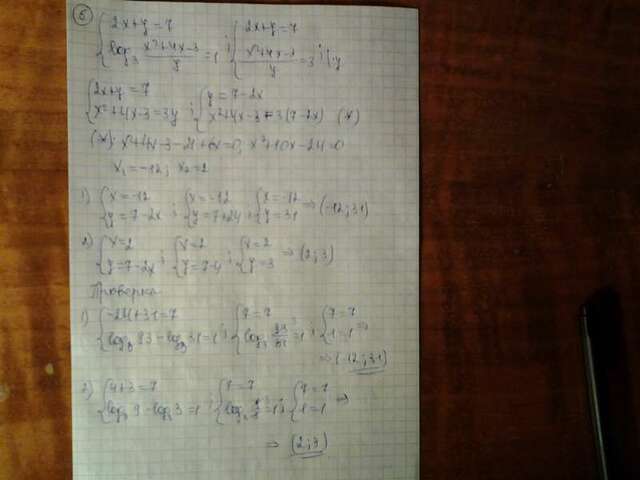 5
{2x+y=7
log₃ (x²+4x-3)/y = 1 ; {2x+y=7
(x²+4x-3)/y = 3 ; |·y
{2x+y=7
x²+4x-3=3y ; {y=7-2x
x²+4x-3=3(7-2x) (*)
(*): x²+4x-3-21+6x=0, x²+10x-24=0
x₁=-12; x₂=2
1) {x=-12
y=7-2x ; {x=-12
y=7+24 ; {x=-12
y=31 ⇒ (-12;31)
2) {x=2
y=7-2x ; {x=2
y=7-4 ; {x=2
y=3 ⇒ (2;3)
Проверка
1) {-24+31=7
log₃ 93-log₃ 31=1 ; {7=7
log₃ 93/31=1 ; {7=7
1=1 ⇒
⇒ (-12;31)
2) {4+3=7
log₃ 9-log₃ 3=1 ; {7=7
log₃ 9/3=1 ; {7=7
1=1 ⇒
⇒ (2;3)